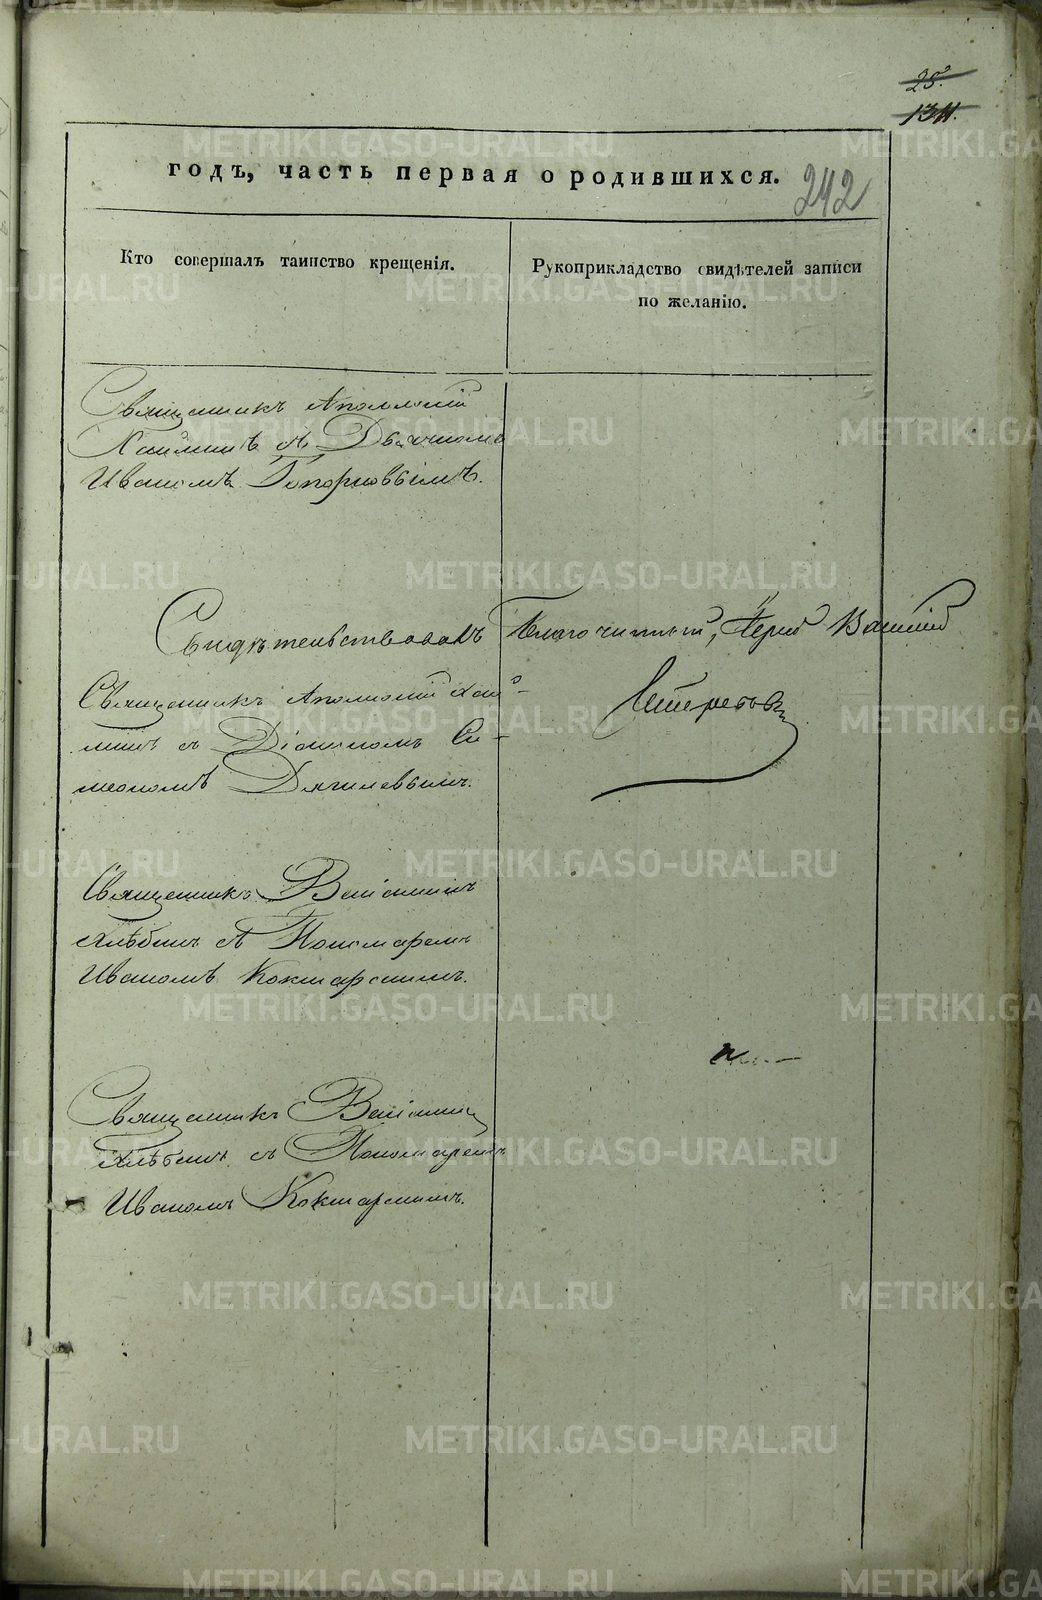 25.
134.
годъ, часть первая о родившихся.
242
Кто совершалъ таинство крещенія.
Рукоприкладство свидѣтелей записи
по желанію.
Священникъ Аполлоній
съ Дьячкомъ
Иваномъ Топорковымъ.
Свидѣтельствовалъ Благочинный, Іерей
Священникъ Аполлоній
съ Діакономъ Си-
меономъ Дягилевымъ.
Священникъ Веніаминъ
Хлѣбинъ съ Пономаремъ
Иваномъ Кокшарскимъ.
Священникъ Веніаминъ
Хлѣбинъ съ Пономаремъ
Иваномъ Кокшарскимъ.
METRIKI.GASO-URAL.RU